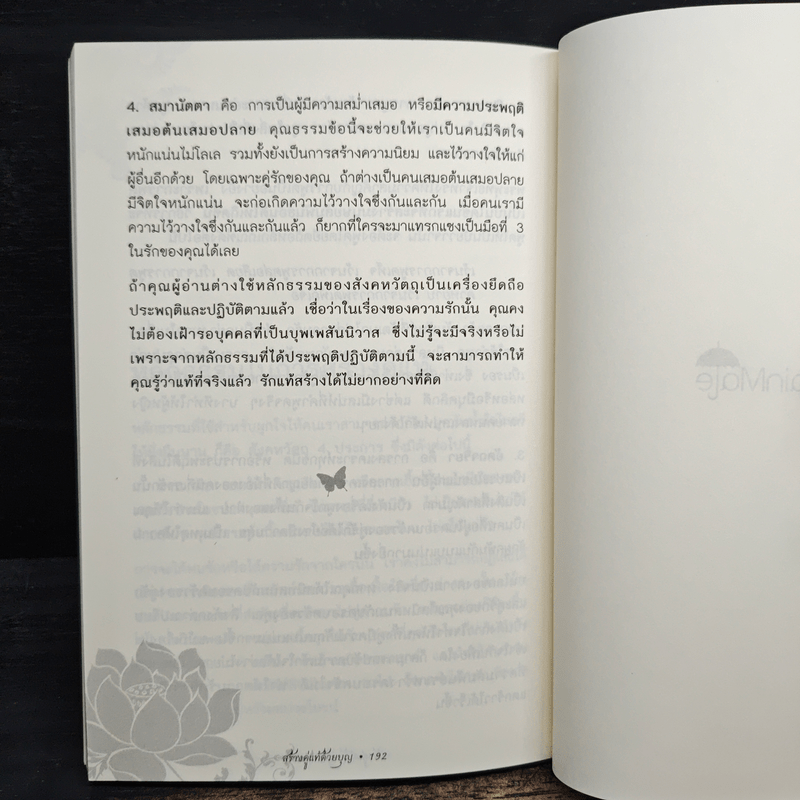 4. สมานัตตา คือ การเป็นผู้มีความสม่ำเสมอ หรือมีความประพฤติ
เสมอต้นเสมอปลาย คุณธรรมข้อนี้จะช่วยให้เราเป็นคนมีจิตใจ
หนักแน่นไม่โลเล รวมทั้งยังเป็นการสร้างความนิยม และไว้วางใจให้แก่
ผู้อื่นอีกด้วย โดยเฉพาะคู่รักของคุณ ถ้าต่างเป็นคนเสมอต้นเสมอปลาย
มีจิตใจหนักแน่น จะก่อเกิดความไว้วางใจซึ่งกันและกัน เมื่อคนเรามี
ความไว้วางใจซึ่งกันและกันแล้ว ก็ยากที่ใครจะมาแทรกแซงเป็นมือที่ 3
ในรักของคุณได้เลย
ถ้าคุณผู้อ่านต่างใช้หลักธรรมของสังคหวัตถุเป็นเครื่องยึดถือ
ประพฤติและปฏิบัติตามแล้ว เชื่อว่าในเรื่องของความรักนั้น คุณคง
ไม่ต้องเฝ้ารอบุคคลที่เป็นบุพเพสันนิวาส ซึ่งไม่รู้จะมีจริงหรือไม่
เพราะจากหลักธรรมที่ได้ประพฤติปฏิบัติตามนี้ จะสามารถทำให้
คุณรู้ว่าแท้ที่จริงแล้ว รักแท้สร้างได้ไม่ยากอย่างที่คิด
สร้างคู่แท้ด้วยบุญ • 192